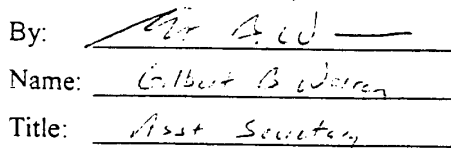 By:
Name: Gilbert B Warren
Title: Asst Secretary